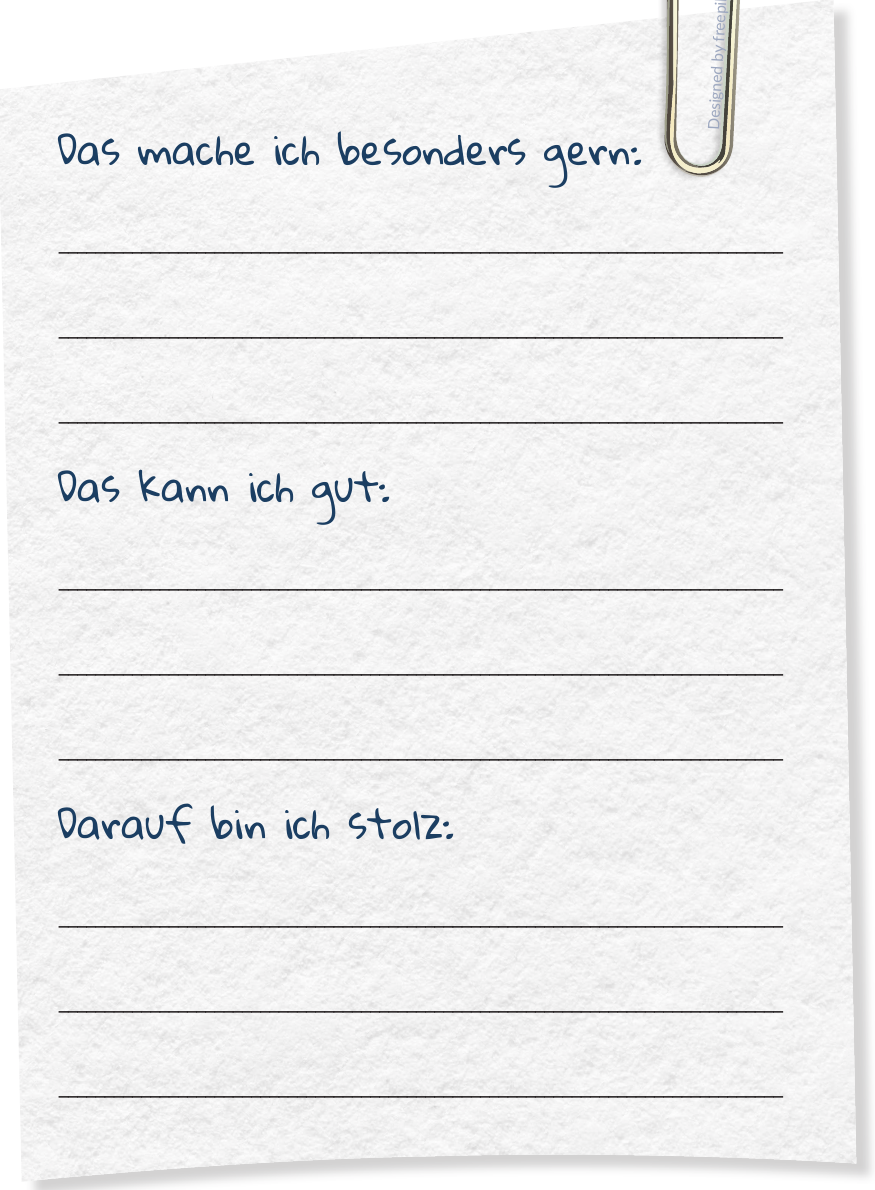 Designed by freepi
Das mache ich besonders gern:
Das kann ich gut:
Darauf bin ich stolz: